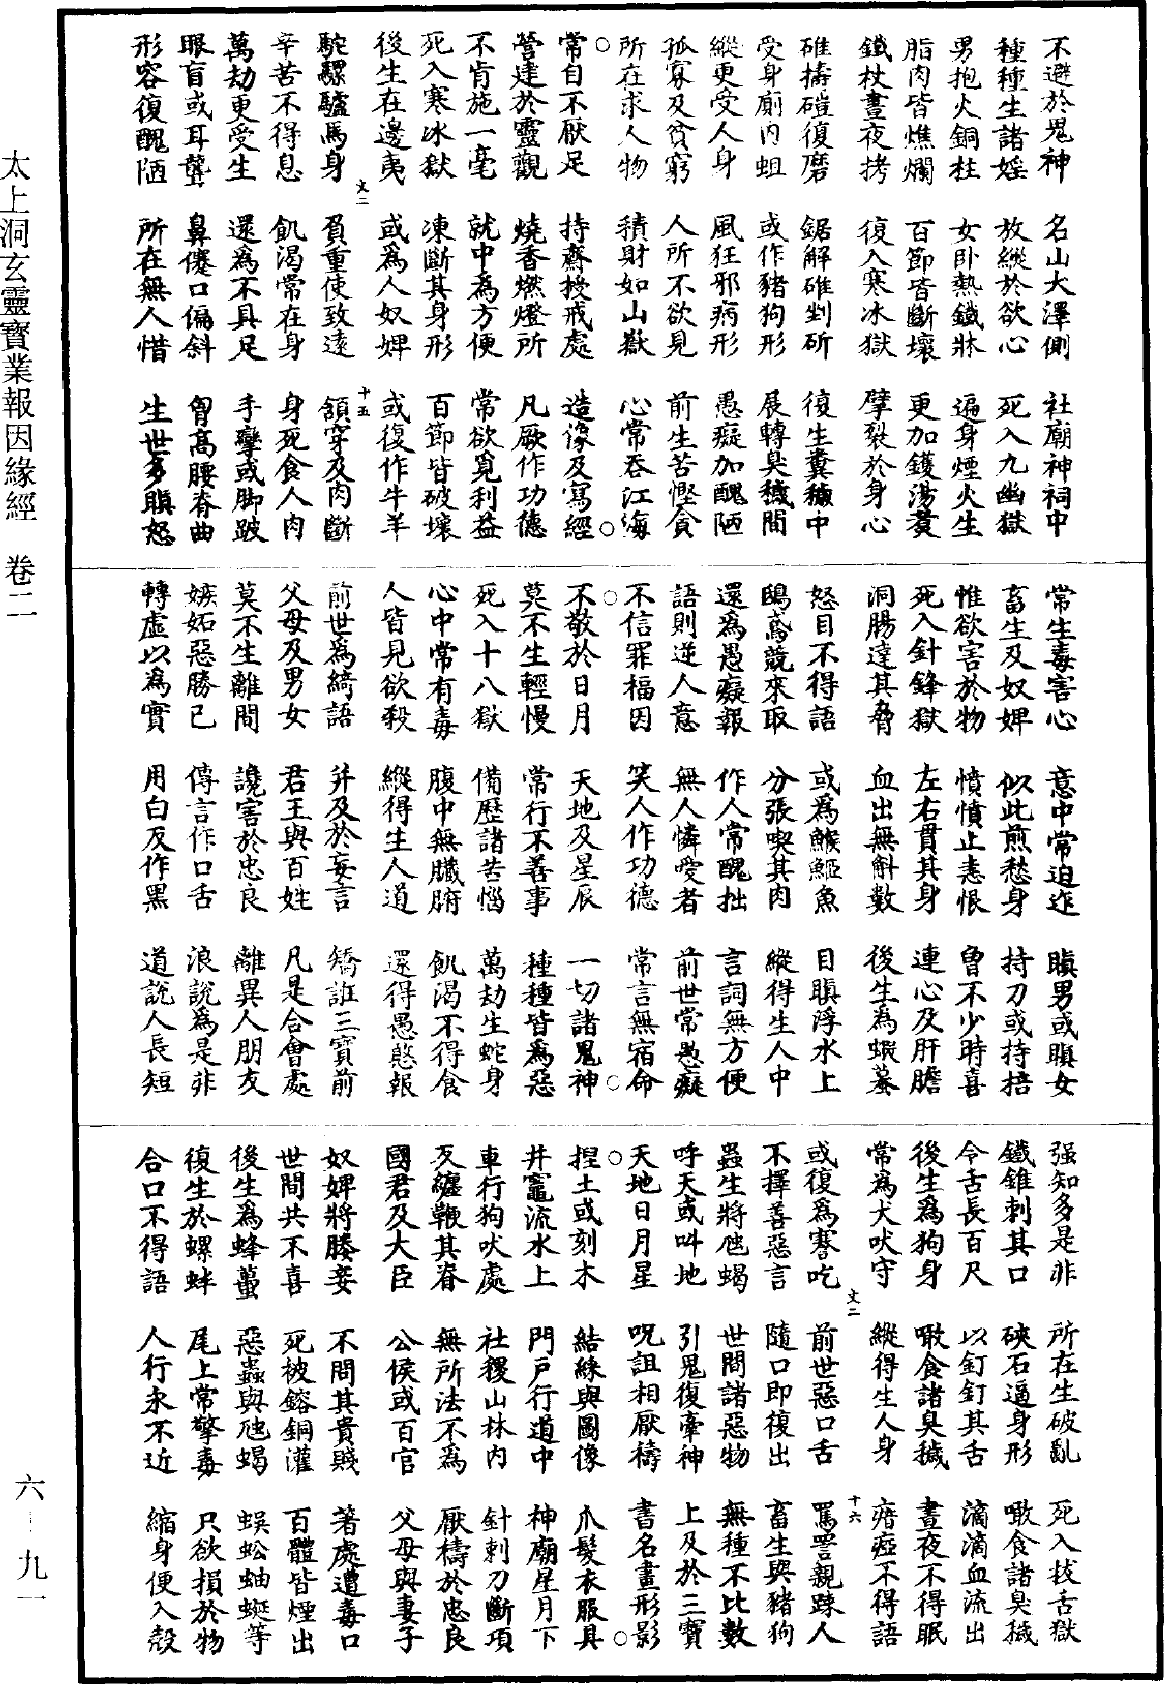 太上洞玄靈寳業報因緣經　卷二
六一九一
不避於鬼神　名山大澤側　社廟神祠中
種種生諸婬　放縱於欲心　死入九幽獄
男抱火銅柱　女卧熱鐵牀　遍身煙火生
脂肉皆燋爛　百節皆斷壞　更加鑊湯煑
鐵杖晝夜拷　復入寒冰獄　擘裂於身心
碓擣磑復磨　鋸解碓剉斫　復生糞穢中
受身廁内蛆　或作豬狗形　展轉臭穢間
縱更受人身　風狂邪病形　愚癡加醜陋
孤寡及貧窮　人所不欲見　前生苦慳貪
所在求人物　積財如山嶽　心常吞江海
○常自不厭足　持齋授戒處　造像及寫經○
營建於靈觀　燒香燃燈所　凡厥作功德
不肯施一毫　就中為方便　常欲覓利益
死入寒冰獄　凍斷其身形　百節皆破壞
後生在邊夷　或為人奴婢　或復作牛羊
文二　十五
駝騾驢馬身　負重使致遠　領穿及肉斷
辛苦不得息　飢渴常在身　身死食人肉
萬劫更受生　還為不具足　手攣或脚跛
眼盲或耳聾　鼻僂口偏斜　胷高腰脊曲
形容復醜陋　所在無人惜　生世多瞋怒
常生毒害心　意中常迫迮　瞋男或瞋女
畜生及奴婢　似此煎愁身　持刀或持掊
惟欲害於物　憤憤止恚恨　曾不少時喜
死入針鋒獄　左右貫其身　連心及肝膽
洞腸達其脅　血出無斛數　後生為蝦蟇
怒目不得語　或為鯸䱌魚　目瞋浮水上
鴟鳶競來取　分張喫其肉　縱得生人中
還為愚癡報　作人常醜拙　言詞無方便
語則逆人意　無人憐愛者　前世常愚癡
不信罪福因　笑人作功德　常言無宿命
○不敬於日月　天地及星辰　一切諸鬼神○
莫不生輕慢　常行不善事　種種皆為惡
死入十八獄　備歷諸苦惱　萬劫生蛇身
心中常有毒　腹中無臟腑　飢渴不得食
人皆見欲殺　縱得生人道　還得愚憨報
前世為綺語　并及於妄言　矯誑三寶前
父母及男女　君王與百姓　凡是合會處
莫不生離間　讒害於忠良　離異人朋友
嫉妬惡勝已　傳言作口舌　浪說為是非
轉虛以為實　用白反作黑　道說人長短
强知多是非　所在生破亂　死入拔舌獄
鐵錐刺其口　硤石逼身形　噉食諸臭穢
今舌長百尺　以釘釘其舌　滴滴血流出
後生為狗身　噉食諸臭穢　晝夜不得眠
常為犬吠守　縱得生人身　瘖瘂不得語
文二　十六
或復為謇吃　前世惡口舌　罵詈親踈人
不擇善惡言　隨口即復出　畜生與豬狗
蟲生將虺蝎　世間諸惡物　無種不比數
呼天或叫地　引鬼復牽神　上及於三寶
天地日月星　呪詛相厭禱　書名畫形影
○捏土或刻木　結緣與圖像　爪髮衣服具○
井竈流水上　門户行道中　神廟星月下
車行狗吠處　社稷山林内　針刺刀斷項
反纏鞭其脊　無所法不為　厭禱於忠良
國君及大臣　公侯或百官　父母與妻子
奴婢將媵妾　不問其貴賤　著處遭毒口
世間共不喜　死被鎔銅灌　百體皆煙出
後生為蜂蠆　惡蟲與虺蝎　蜈蚣蚰蜒等
復生於螺蚌　尾上常擎毒　只欲損於物
合口不得語　人行永不近　縮身便入殼